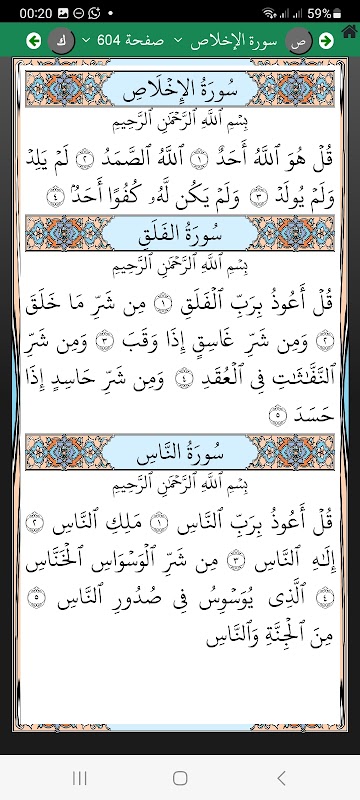 00:20 59%
ص سورة الإخلاص صفحة 604 ك
سُورَةُ الإِخْلَاصِ
بِسْمِ ٱللَّهِ ٱلرَّحْمَٰنِ ٱلرَّحِيمِ
قُلْ هُوَ ٱللَّهُ أَحَدٌ ١ ٱللَّهُ ٱلصَّمَدُ ٢ لَمْ يَلِدْ
وَلَمْ يُولَدْ ٣ وَلَمْ يَكُن لَّهُۥ كُفُوًا أَحَدٌۢ ٤
سُورَةُ الفَلَقِ
بِسْمِ ٱللَّهِ ٱلرَّحْمَٰنِ ٱلرَّحِيمِ
قُلْ أَعُوذُ بِرَبِّ ٱلْفَلَقِ ١ مِن شَرِّ مَا خَلَقَ
٢ وَمِن شَرِّ غَاسِقٍ إِذَا وَقَبَ ٣ وَمِن شَرِّ
ٱلنَّفَّٰثَٰتِ فِى ٱلْعُقَدِ ٤ وَمِن شَرِّ حَاسِدٍ إِذَا
حَسَدَ ٥
سُورَةُ النَّاسِ
بِسْمِ ٱللَّهِ ٱلرَّحْمَٰنِ ٱلرَّحِيمِ
قُلْ أَعُوذُ بِرَبِّ ٱلنَّاسِ ١ مَلِكِ ٱلنَّاسِ ٢
إِلَٰهِ ٱلنَّاسِ ٣ مِن شَرِّ ٱلْوَسْوَاسِ ٱلْخَنَّاسِ
٤ ٱلَّذِى يُوَسْوِسُ فِى صُدُورِ ٱلنَّاسِ ٥
مِنَ ٱلْجِنَّةِ وَٱلنَّاسِ